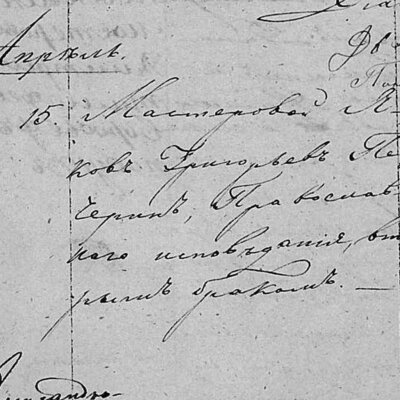 Апрѣль.
15. Мастеровой Я-
ковъ Григорьевъ Пе-
черинъ, Православ-
наго исповѣданія, вто-
рымъ бракомъ. —